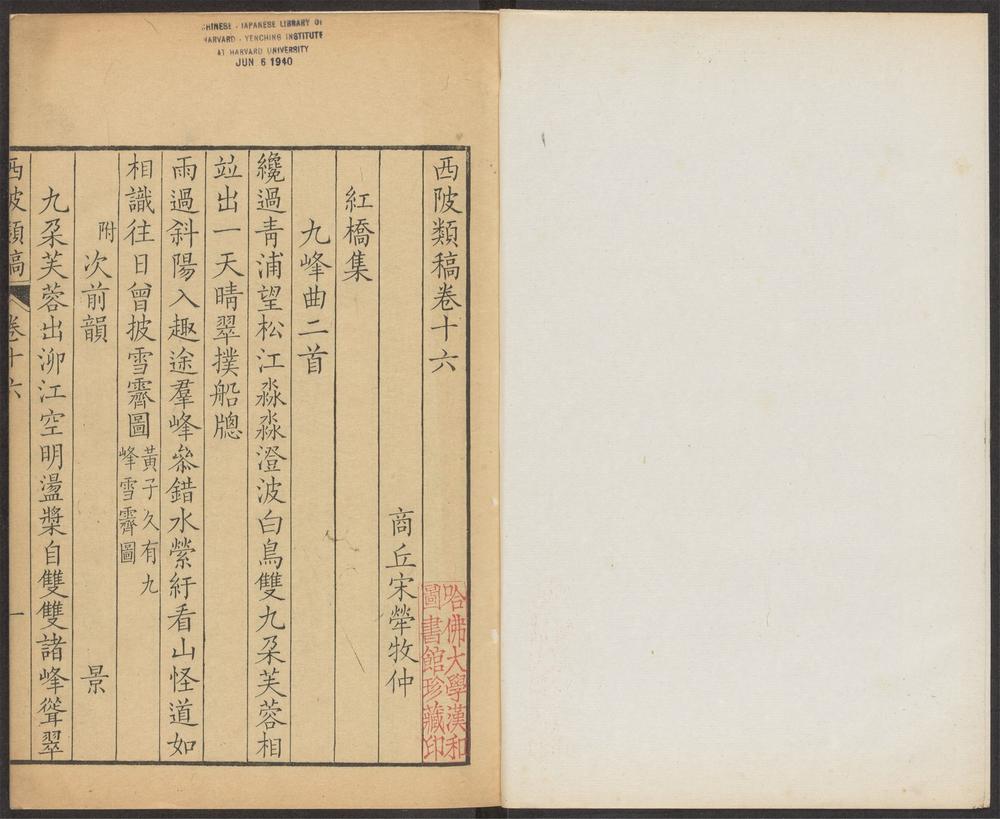 CHINESE - JAPANESE LIBRARY OF
HARVARD - YENCHING INSTITUTE
AT HARVARD UNIVERSITY
JUN 6 1940
西陂類稿卷十六
商丘宋犖牧仲
哈佛大學漢和
圖書館珍藏印
紅橋集
九峰曲二首
纔過靑浦望松江淼淼澄波白鳥雙九朶芙蓉相
竝出一天晴翠撲船牕
雨過斜陽入趣途羣峰叅錯水縈紆看山怪道如
相識往日曾披雪霽圖
黃子久有九
峰雪霽圖
附次前韻 景
九朶芙蓉出泖江空明盪槳自雙雙諸峰聳翠
西陂類稿 卷十六 一